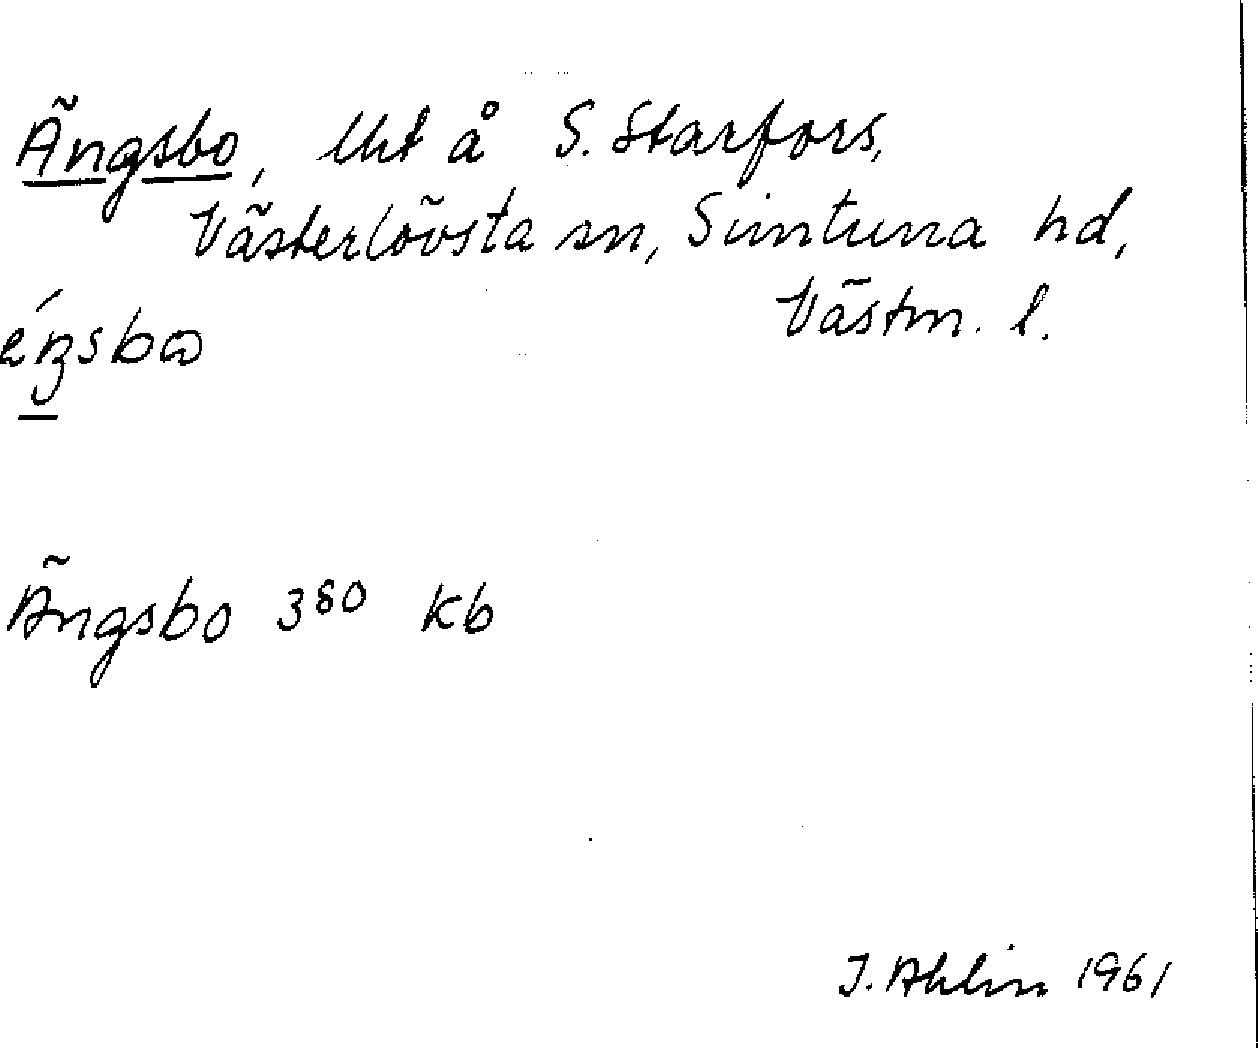 Ängsbo, lht å S. Starfors,
Västerlövsta sn, Simtuna hd,
Västm. l.
Ängsbo 380 kb
J. Ahlin 1961